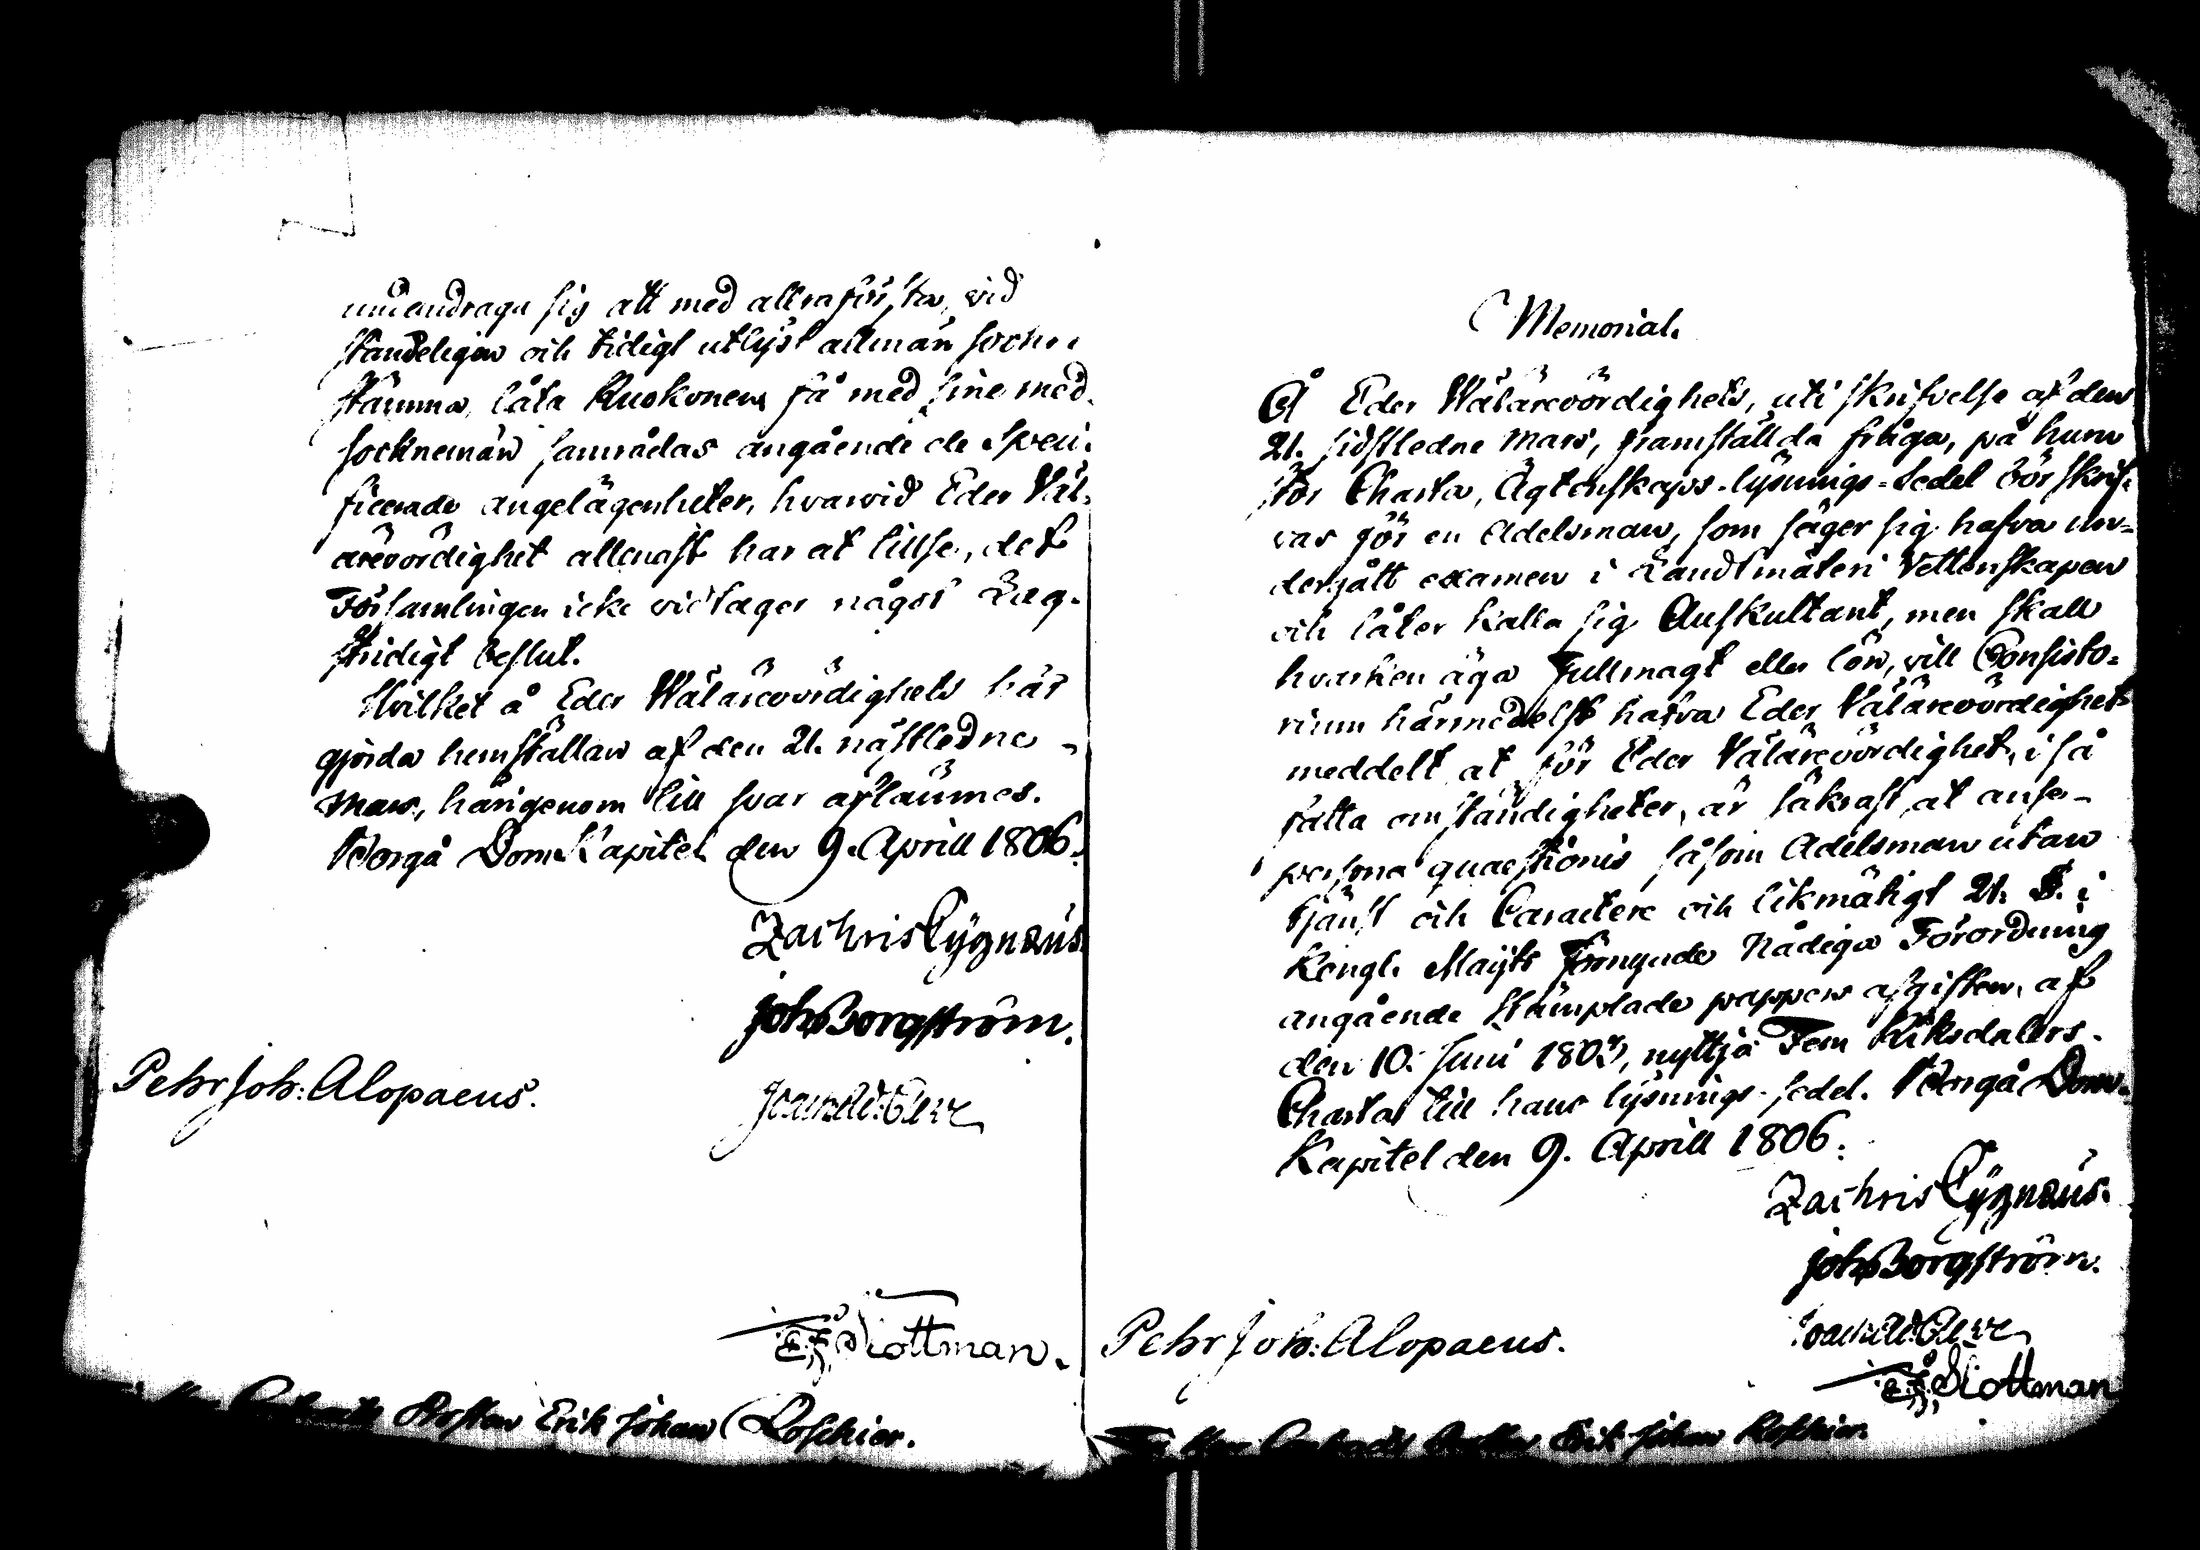 sig att med allraförsta, vid
ständeligen och tidigt utlyst allmän sockne
stämma, låta Ruokonen få med sine med
socknemän samrådas angående de Speci¬
ficerade angelägenheter, hvarvid Eder Väl¬
ärevördighet allenast har at tillse, det
Församlingen icke vidtager något Lag¬
stridigt beslut.
Hvilket å Eder Wälärevördighets här
gjorda hemställan af den 21. nästledne
Mars, härigenom till svar aflämnes.
Borgå Dom Kapitel den 9. Aprill 1806.
Zachris Cygnæus
Joh Borgström.
Pehr Joh: Alopaeus.
Slottman.
Prosten Erik Johan Roschier.
Memorial.
Å Eder Wälärevördighets, uti skrifvelse af den
21. sidstledne Mars, framställda fråga, på hura
stor Charta, Ägtenskaps-lysnings-Sedel bör skrif¬
vas för en Adelsman, som säger sig hafva un¬
dergått examen i Landtmäteri Vettenskapen
och låter kalla sig Auskultant, men skall
hvarken äga Fullmagt eller lön, vill Consisto¬
rium härmedelst hafva Eder Välärevördighet
meddelt at för Eder Välärevördighet, i så
fatta omständigheter, är säkrast at anse
persona quaestionis såsom Adelsman utan
tjänst och Caractere och likmätigt 21. §. i
Kongl. Maijts Förnyade Nådiga Förordning
angående Stämplade pappers afgiften, af
den 10. Juni 1803, nyttja Fem Riksdalers
Charta till hans lysnings-sedel. Borgå Dom
Kapitel den 9. Aprill 1806.
Zachris Cygnæus.
Joh Borgström.
Pehr Joh: Alopaeus.
Slottman
Prosten Erik Johan Roschier.